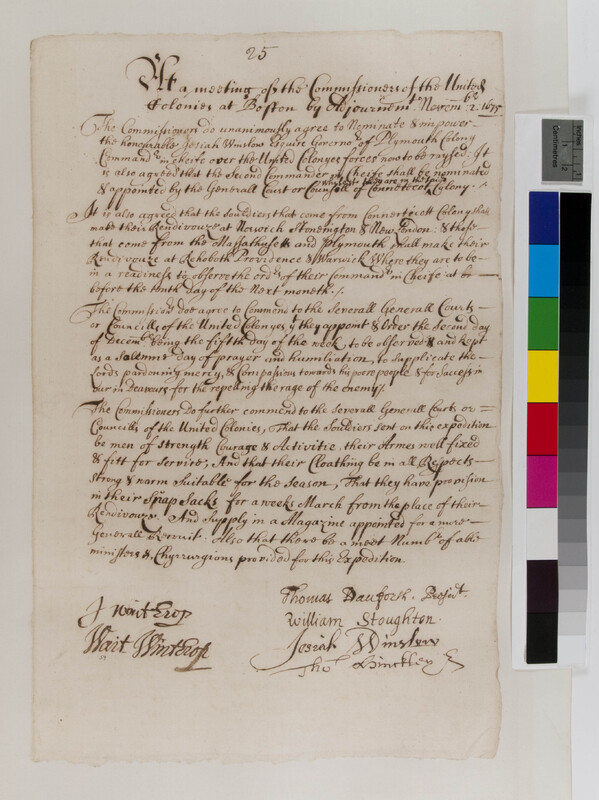 25
At a meeting of the Commissioners of the United
Colonies at Boston by Adjournmt. Novembr. 2. 1675
The Commissioners do unanimously agree to Nominate & impower
the honorable Josiah Winslow Esquire Governor. of Plymouth Colony
Commandr. in cheife over the United Colonyes forces now to be raysed. It
is also agreed that the second Commander in Cheife shall be nominated
& appointed by the Generall Court or Councill of Connetecot Colony. /.
It is also agreed that the souldiers that come from Connecticott Colony shall
make their Rendivouze at Norwich Stonington & New London & those
that come from the Massathusets and Plymouth shall make their
Rendivouze at Rehoboth Providence & Warwick Where they are to be
in a readiness to observe the ordrs. of their Commandr. in Cheife at or
before the tenth day of the Next moneth./.
The Commissionrs. doe agree to Commend to the Severall Generall Courts
or Councills of the United Colonyes yt. they appoint & Order the second day
of Decembr. being the fifth day of the week to be observed & and kept
as a Solemne day of prayer and humiliation, to supplicate the
Lords pardoning mercy, & Compassion towards his poore people & for success in
our indeavours for the repelling the rage of the enemy/.
The Commissioners Do further commend to the severall Generall Courts or
Councills of the United Colonies, That the Souldiers sent on this expedition
be men of strength Courage & Activitie, their Armes well fixed
& fitt for service, And that their Cloathing be in all Respects
strong & warm suitable for the season, That they have provision
in their Snap Sacks for a weeks March from the place of their
Rendivouze. And Supply in a Magazine appointed for a more
Generall Recruit. Also that there be a meet Numbr. of able
ministers & Chyrurgions provided for this Expedition.
Thomas Danforth. Presidt.
J Winthrop
William Stoughton
Wait Winthrop
Josiah Winslow
Tho: Hinckley
Centimetres
inches